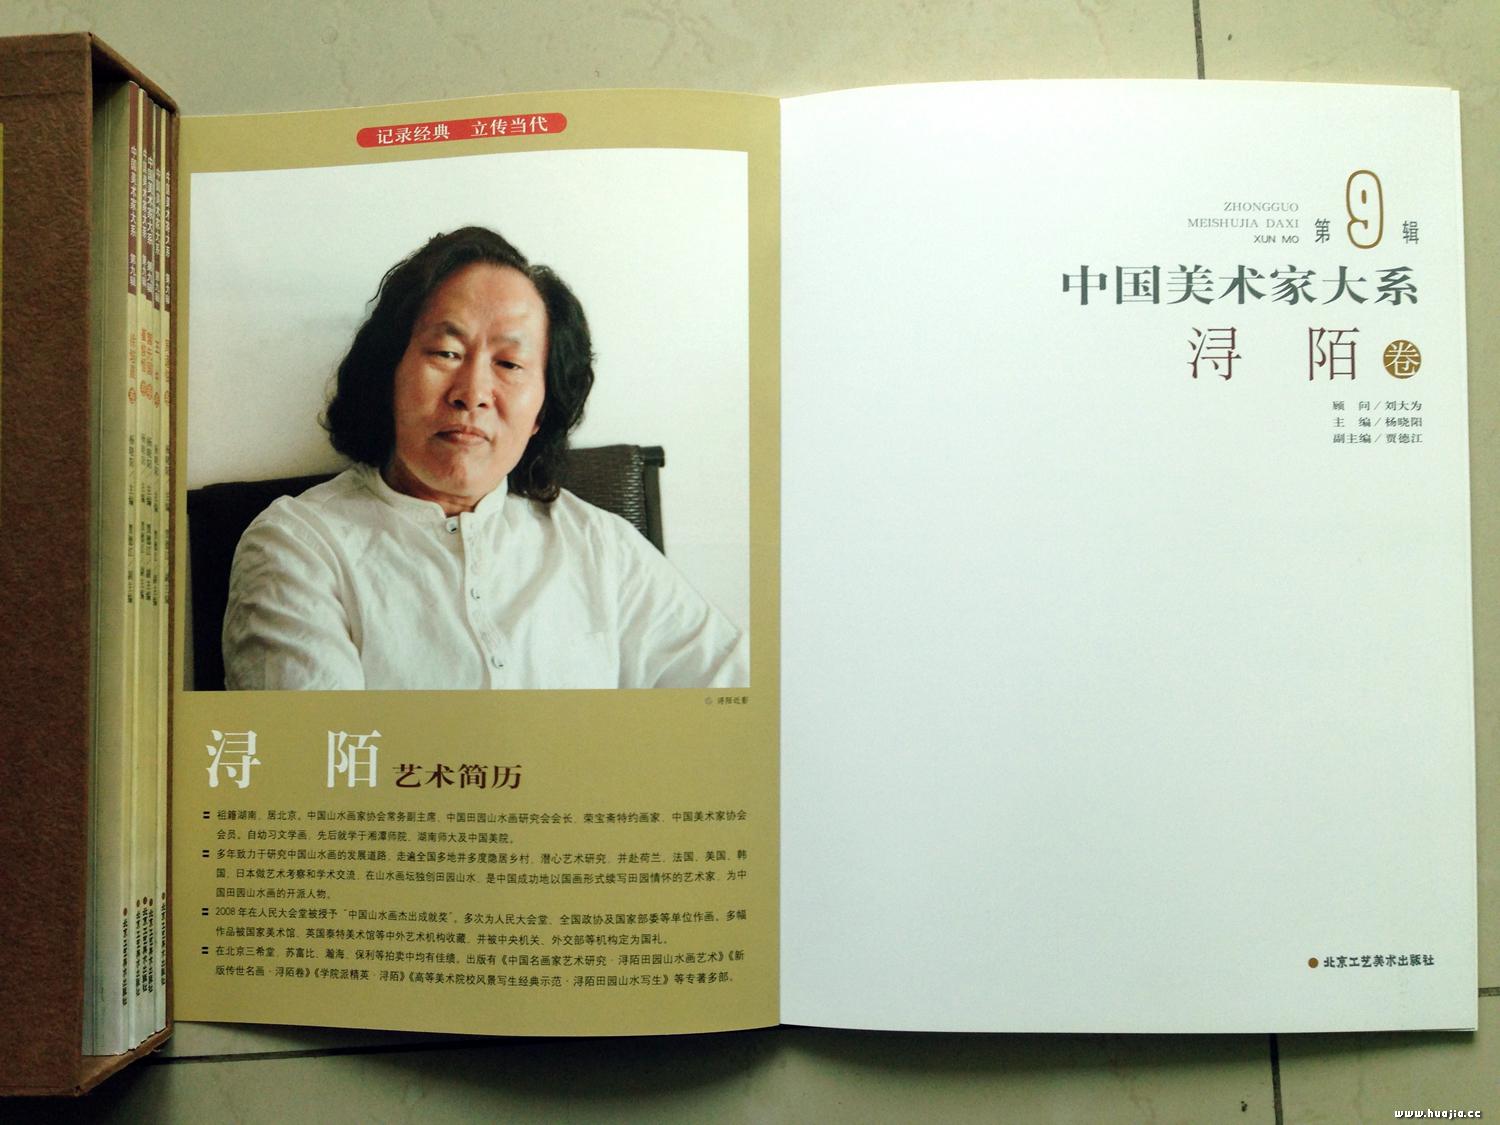 中国美术家大系 第九辑
中国美术家大系 第九辑
中国美术家大系 第九辑
中国美术家大系 第九辑
中国美术家大系 第九辑
北京工艺美术出版社
北京工艺美术出版社
北京工艺美术出版社
北京工艺美术出版社
北京工艺美术出版社
记录经典 立传当代
浔陌近影
浔 陌 艺术简历
祖籍湖南，居北京。中国山水画家协会常务副主席，中国田园山水画研究会会长，荣宝斋特约画家，中国美术家协会
会员。自幼习文学画，先后就学于湘潭师院，湖南师大及中国美院。
多年致力于研究中国山水画的发展道路，走遍全国多地并多度隐居乡村，潜心艺术研究，并赴荷兰、法国、美国、韩
国、日本做艺术考察和学术交流，在山水画坛独创田园山水，是中国成功地以国画形式续写田园情怀的艺术家，为中
国田园山水画的开派人物。
2008年在人民大会堂被授予“中国山水画杰出成就奖”。多次为人民大会堂、全国政协及国家部委等单位作画。多幅
作品被国家美术馆、英国泰特美术馆等中外艺术机构收藏，并被中央机关、外交部等机构定为国礼。
在北京三希堂、苏富比、瀚海、保利等拍卖中均有佳绩。出版有《中国名画家艺术研究·浔陌田园山水画艺术》《新
版传世名画·浔陌卷》《学院派精英·浔陌》《高等美术院校风景写生经典示范·浔陌田园山水写生》等专著多部。
ZHONGGUO
MEISHUJIA DAXI
XUN MO
第9辑
中国美术家大系
浔 陌 卷
顾 问／刘大为
主 编／杨晓阳
副主编／贾德江
北京工艺美术出版社
www.huajia.cc